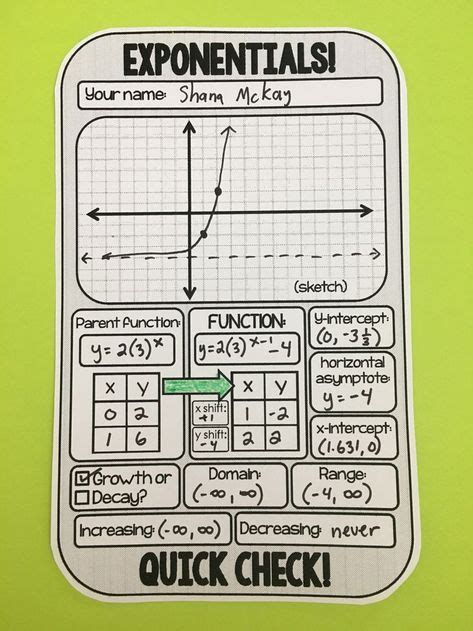 EXPONENTIALS!
Your name: Shana McKay
(sketch)
Parent function:
y = 2(3)^x
x y
0 2
1 6
FUNCTION:
y=2(3)^x-1 -4
x shift: +1
y shift: -4
x y
1 -2
2 2
y-intercept:
(0, -3⅓)
horizontal
asymptote:
y = -4
x-intercept:
(1.631, 0)
☑Growth or
☐Decay?
Domain:
(-∞, ∞)
Range:
(-4, ∞)
Increasing: (-∞, ∞)
Decreasing: never
QUICK CHECK!